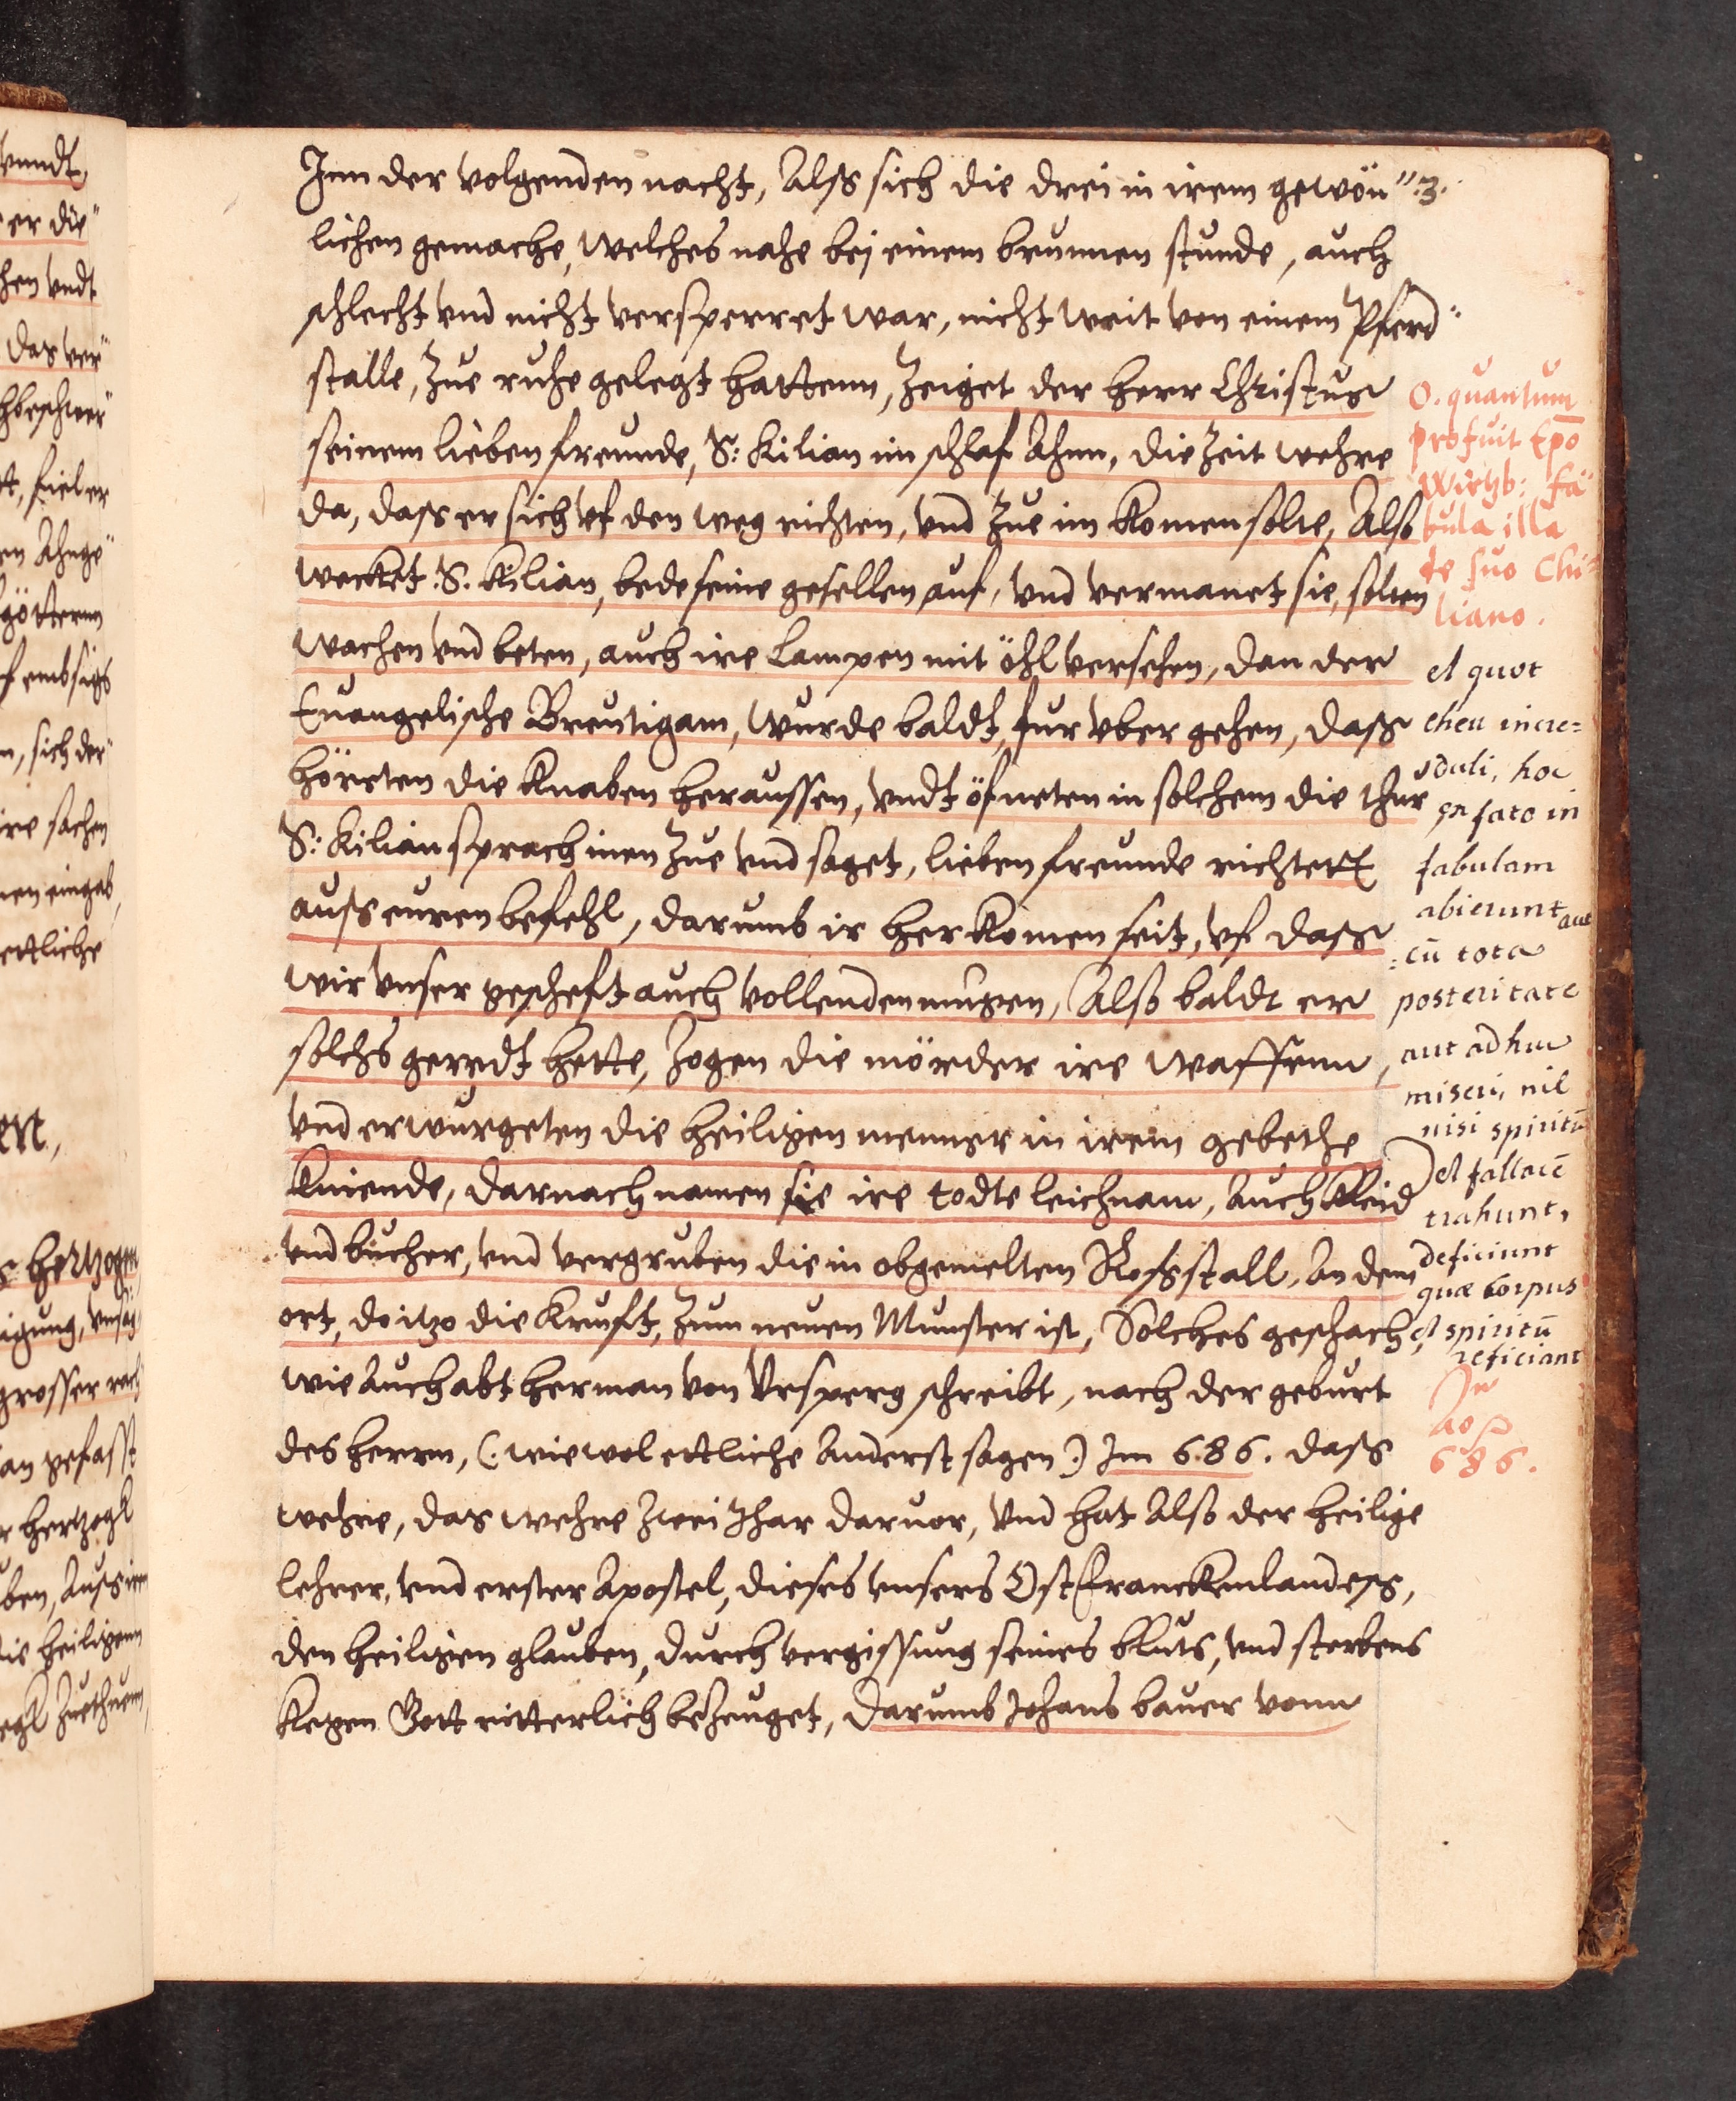 Inn der volgenden nacht, Alss sich die drei in irem gewön"
.3.
lichen gemache, welches nahe bej einem brunnen stunde, auch
schlecht vnd nicht versperret war, nicht weit von einem Pferd"
stalle, zue ruhe gelegt hattenn, zeiget der herr Christus
seinem lieben freunde, S: Kilian im schlaf Ahnn, die zeit wehre
da, dass er sich vf den weg richten, vnd zue im komen solte, Also
wecket .S. Kilian, bede seine gesellen auf, vnd vermanet sie, solten
wachen vnd beten, auch ire Lampen mit öhl versehen, dan der
Euangelische Breutigam, wurde baldt, fur vber gehen, dass
höreten die knaben heraussen, vndt öfneten in solchem die thur
S: Kilian sprach inen zue vnd saget, lieben freunde richtett
auss euren befehl, darumb ir her komen seit, vf dass
wir vnser gescheft auch vollenden mugen, Also baldt er
solchs geredt hette, zogen die mörder ire waffenn,
vnd erwurgeten die heiligen menner in irem gebethe
kniende, darnach namen sie ire todte leichnam, Auch kleid
vnd bücher, vnd vergruben die in obgemelten Rossstall, An dem
ort, do itzo die kruft, zum neuen Munster ist, Solches geschach,
wie Auch abt herman von Vrsperg schreibt, nach der geburt
des herrn, (: wiewol ettliche Anderst sagen :) Im 686. dass
wehre, das wehre zwei Jhar daruor, vnd hat Also der heilige
lehrer, vnd erster Apostel, dieses vnsers Ost Franckenlandess,
den heiligen glauben, durch vergissung seines bluts, vnd sterbens
kegen Gott ritterlich bezeuget, darumb Johans bauer vonn
O. quantum
profuit Epo
Wirtzb: fa"
bula illa
de suo Chi=
liano.
et quot
eheu incre=
duli, hoc
in fato in
fabulam
abierunt aut
cū tota
posteritate
aut adhuc
miseri, nil
nisi spiritū
et fallacē
trahunt,
deficiunt
quæ corpus
et spiritū
reficiant
In
ao
686.